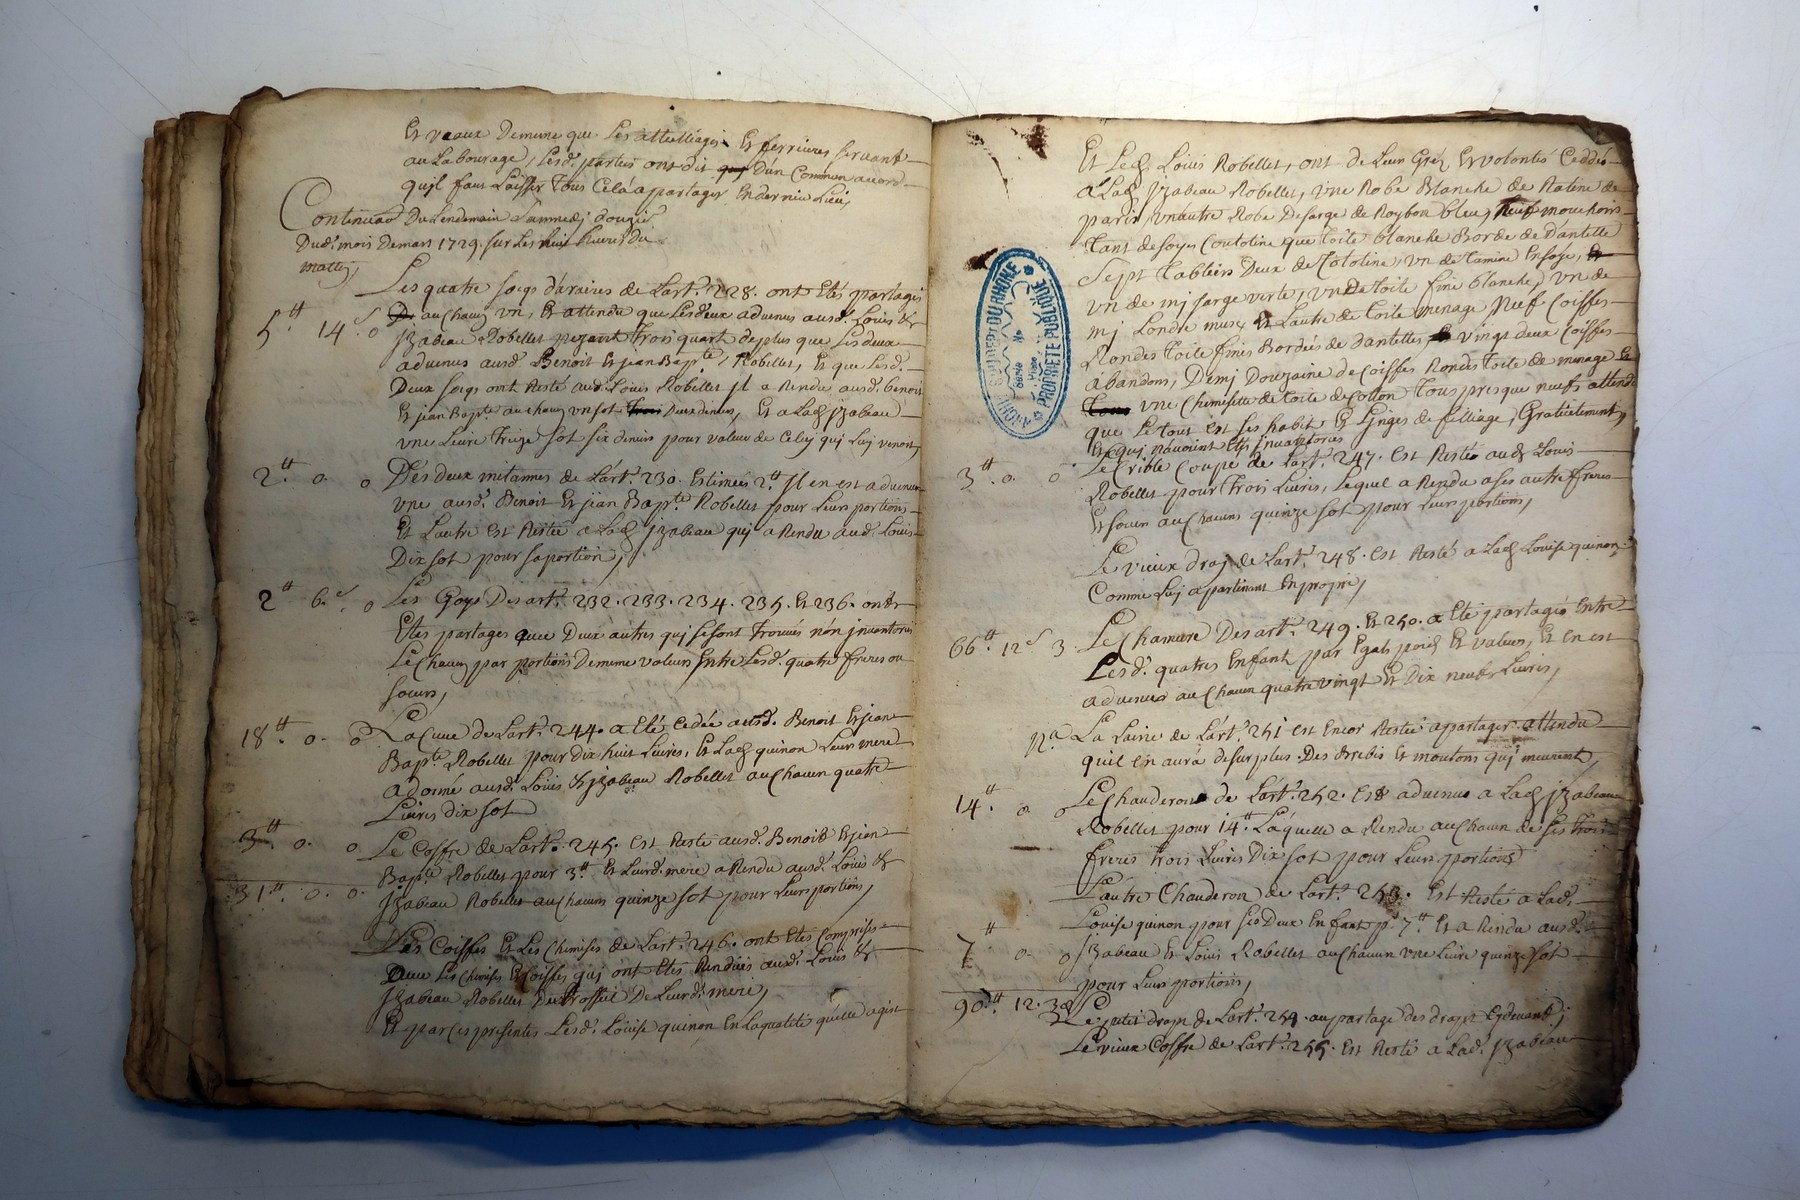 Et veaux demême que Les attelliages Et ferrieures servant
au Labourage, Lesd. parties ont dit d'un Commun accord
quil faut Laisser tous Cela a partager En dernier Lieu,
Continuaõn Du Lendemain Sammedj douzie
Dud. mois Demars 1729. sur Les huit heures du
Mattin,
Les quatre socqs d'araires de L'art. 228. ont Etés partagés
5tt 14s 0 au Chaun vn, Et attendu que Lesdeux advenus ausd. Louis &
Jzabeau Robellet pezant trois quart deplus que Lesdeux
advenus ausd. Benoit Et jean Bapte. Robellet, Et que Lesd.
Deux socqs ont Resté aud. Louis Robellet Jl a Rendu ausd. benoit
Et jean Bapte. au chaun vn sot deux deniers, Et a Lad. jzabeau
vne Livre treize sot six deniers pour valeur de Celuy quj Luj venoit,
2tt. 0. 0 Des deux mitannes de L'art. 230. Estimées 2tt. Jl en est advenue
vne ausd. Benoit Et jean Bapte. Robellet pour Leurs portions
Et Lautre est Restée a Lad. Jzabeau quj a Rendu aud. Louis
Dix sot pour saportion,
2tt 6.s. 0 Les Goys Des art. 232. 233. 234. 235. Et 236. ont
Etes partagés que Deux autres quj sesont trouvés non jnventoriés
Le Chaun par portions Demême valeurs Entre Lesd. quatre freres ou
soeurs,
18tt. 0. 0 La Cuve de Lart. 244. a Eté Cedée ausd. Benoit Et jean
Bapte. Robellet pour Dix huit Livres, Et Lad. quinon Leur mere
a donné ausd. Louis & jzabeau Robellet au Chaun quatre
Livres dix sot
3tt. 0. 0 Le Coffre de Lart. 245. est Resté ausd. Benoit Et jean
Bapte. Robellet pour 3tt. Et Leurd. mere a Rendu ausd. Louis &
31.tt. 0. 0. Jzabeau Robellet au Chauns quinze sot pour Leurs portions,
Les Coiffes Et Les Chemises de Lart. 246. ont Etés Comprises
Les Chemises Coiffes quj ont Etés Rendües ausd. Louis &
Jzabeau Robellet Du trosseil De Leurd. mere,
Et par Ces presentes Lesd. Louise quinon En Laqualité qu'elle agist
Et Led. Louis Robellet, ont de Leur Grez Et volontés Ceddés
a Lad. Jzabeau Robellet, vne Robe Blanche de Ratine de
paris, vn autre Robe Desarge de Roybon bleu, Neuf mouchoirs
tant de soyes Coutoline que toile blanche Borde de Dantelle
Sept tabliers Deux de Cotoline, vn de tamine En soye,
vn de mj sarge verte, vn De toile fine blanche, vn de
mj Londre musq Et Lautre de toile menage Neuf Coiffes
Rondes toile fines Bordées de dantelles vingt deux Coiffes
abandons, Demj Douzaine de Coiffes Rondes toile de menage Et
vne Chemisette de toile de Cotton tous presque neufs attendu
que Le tout Est ses habit Et Linges de filliage, Gratuitement,
Et quj n'avoient Etés jnvantoriés
3tt. 0. 0 Le Crible Coupe de Lart. 247. est Resté aud. Louis
Robellet pour trois Livres, Lequel a Rendu ases autre freres
Et soeur au Chauns quinze sot pour Leurs portions,
Le vieux drap de Lart. 248. est Resté a Lad. Louise quinon
Comme Luj apartenant En propre,
66tt. 12s 3 Le Chamure Des art. 249. Et 250. a Eté partagés Entre
Lesd. quatres Enfant par Egals poids Et valeur, Et en est
advenues au Chaun quatre vingt Et Dix neuf Livres,
Na La Laine de L'art. 251 est Encor Restée appartager attendu
quil en aura desurplus Des Brebis Et moutons quj meurent,
14tt. 0 0 Le Chauderon de Lart. 252. Est advenue a Lad. jzabeau
Robellet pour 14tt. Laquelle a Rendu au Chaun de ses trois
freres trois Livres Dix sot pour Leurs portions
Lautre Chauderon de Lart. 253. Est Resté a Lad.
Louise quinon pour ses Deux Enfant p. 7tt Et a Rendu ausd.
7tt 0. 0 Jzabeau Et Louis Robellet au Chaun vne Livre quinze sot
pour Leurs portions,
90.tt. 12. 3d Le petit drap de Lart. 254. au partage des draps Cydevant,
Le vieux Coffre de Lart. 255. Est Resté a Lad. jzabeau
ARCHIVES DU DEPT DU RHONE
PROPRIÉTÉ PUBLIQUE